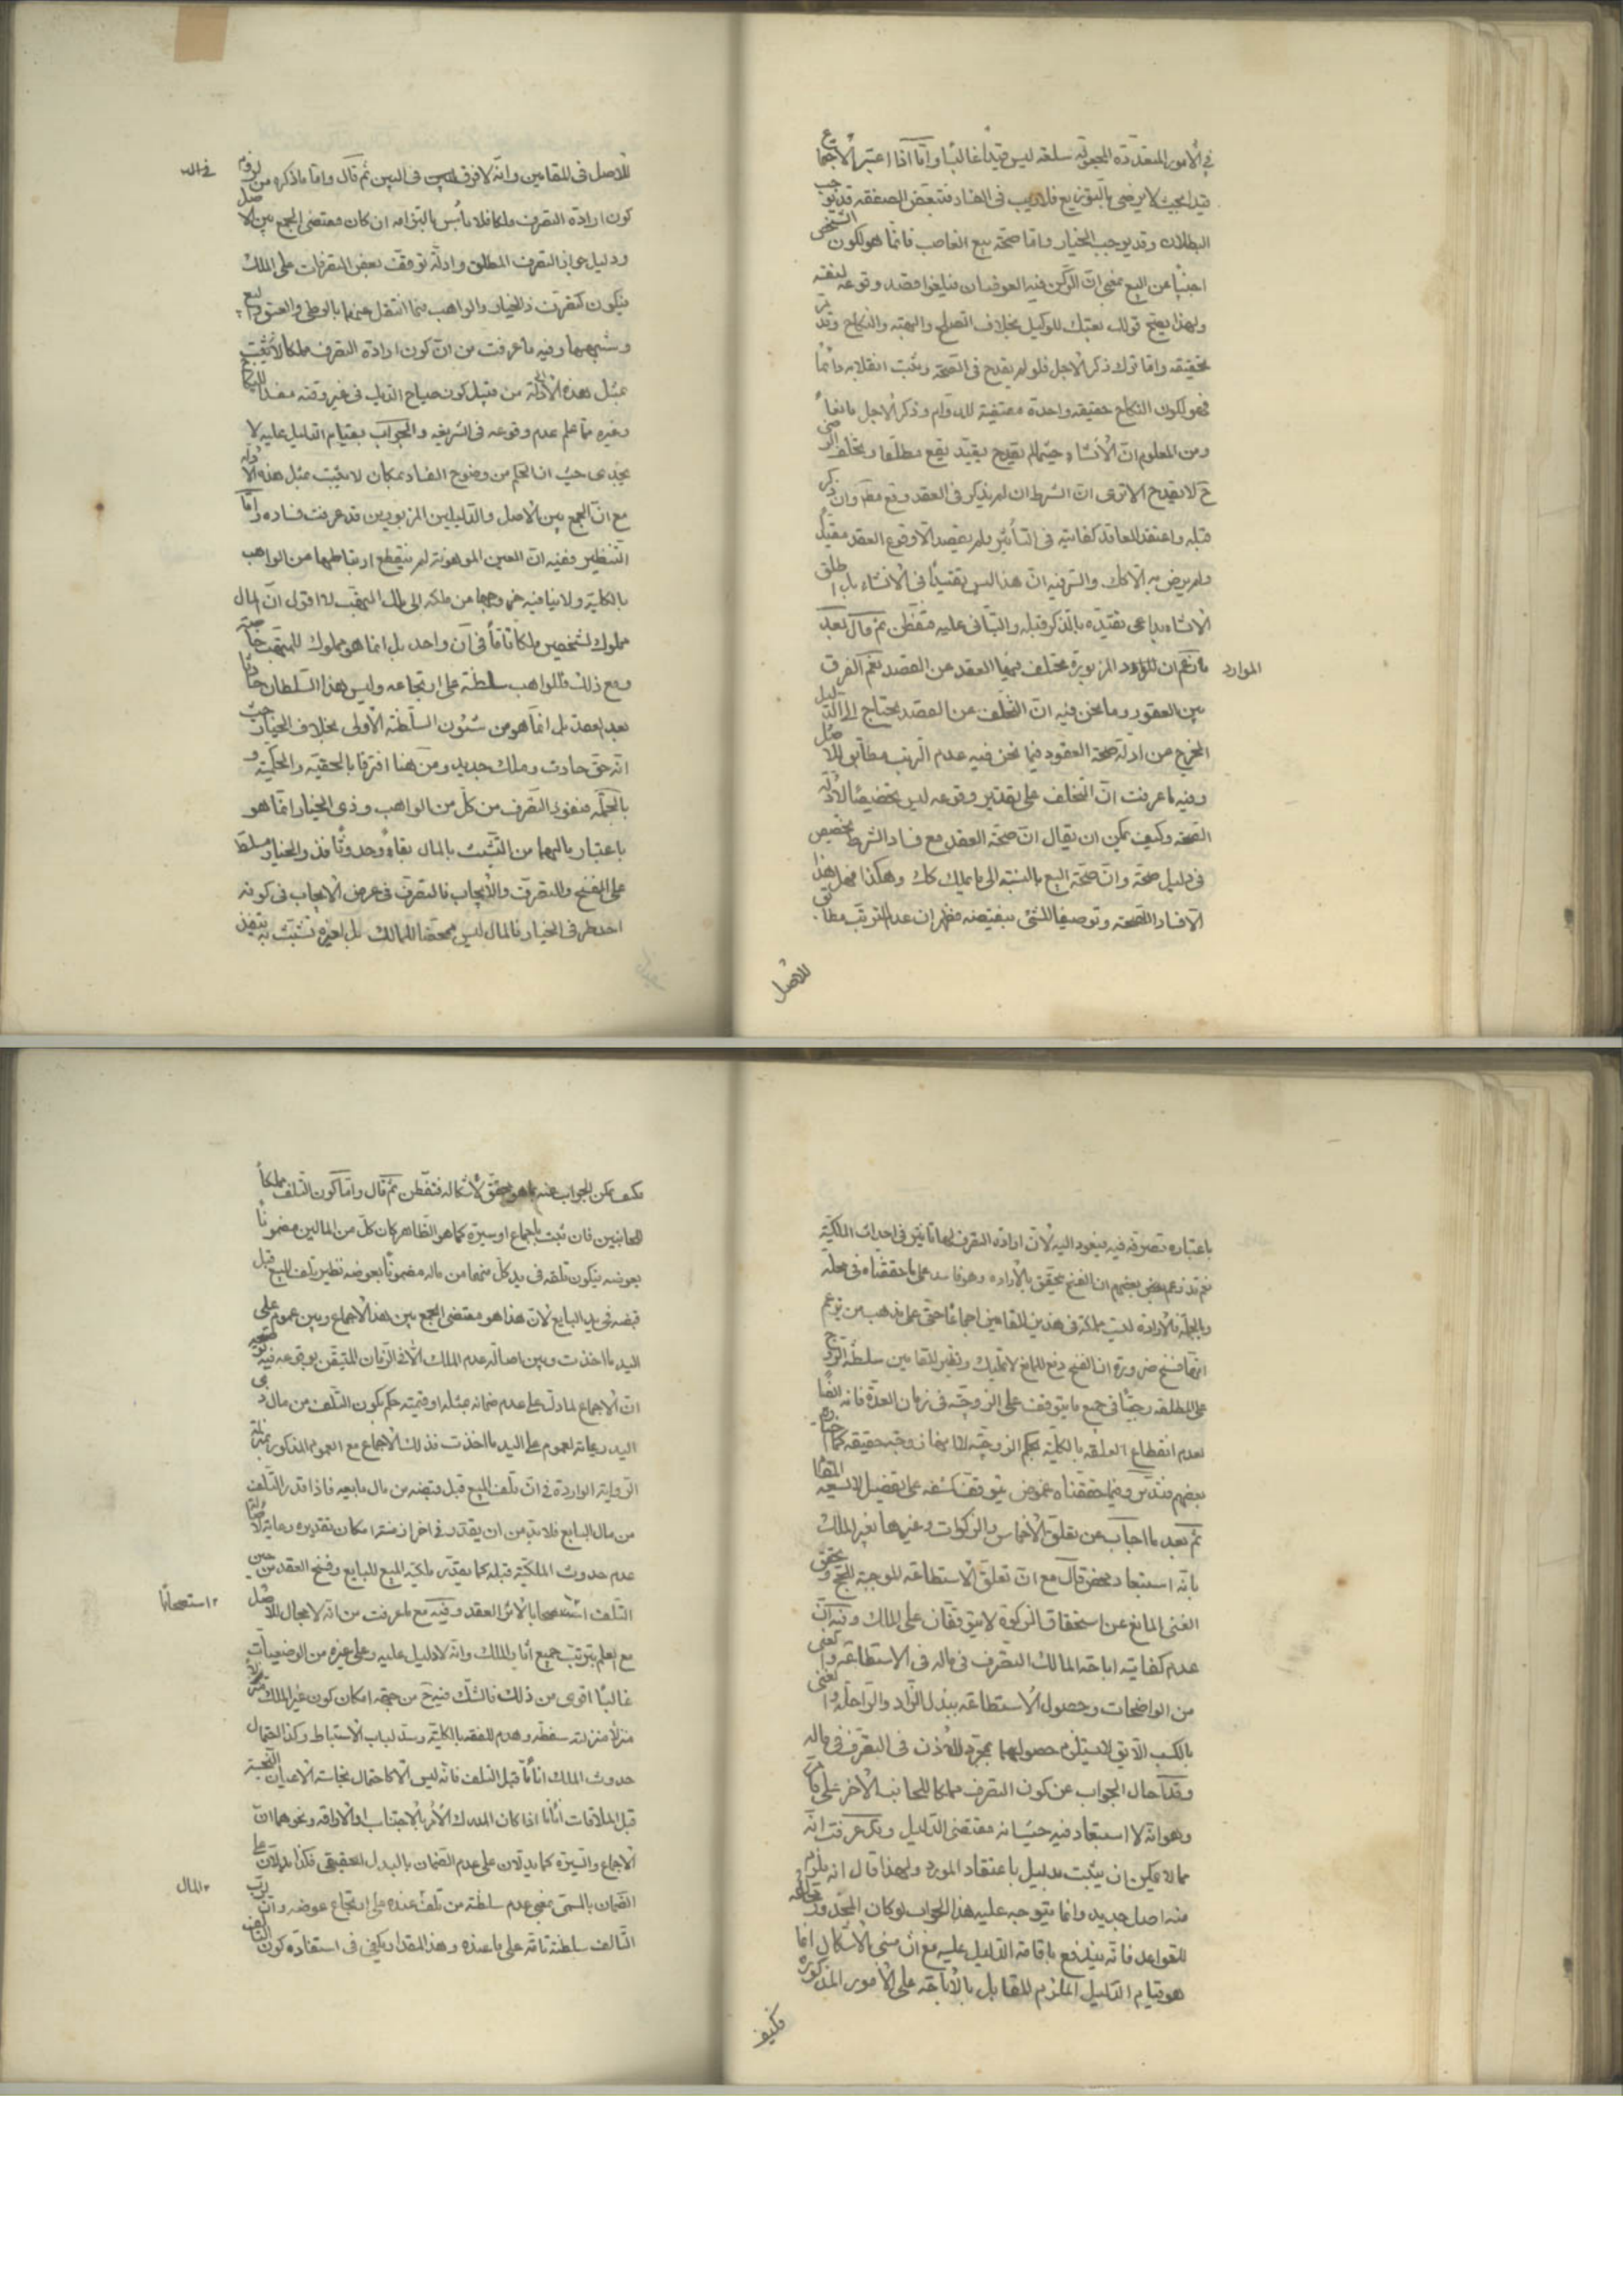 في الامور المتعددة المجعولة سلعة ليس قيدا غالبا واما اذا اعتبر الاجتماع
قيدا بحيث لا يرضى بالتوزيع فلا ريب في الفساد فتبعض الصفقة قد يوجب
البطلان وقد يوجب الخيار واما صحة بيع الغاصب فانما هو لكون الشخص
اجنبيا عن البيع بمعنى ان الركن فيه العوضان فيلغوا قصد وقوعه لنفسه
ولهذا يصح قولك بعتك للوكيل بخلاف الصلح والهبة والنكاح وقد مر
تحقيقه واما ترك ذكر الاجل فلو لم يقدح في الصحة ويثبت انقلابه دائما
فهو لكون النكاح حقيقة واحدة مقتضية للدوام وذكر الاجل مانعا
ومن المعلوم ان الانشاء حيثما لم يقيد بقيد يقع مطلقا وتخلف الرضى
ح لا يقدح الا ترى ان الشرط ان لم يذكر في العقد وقع مطلقا وان ذكر
قبله واعتقد العاقد كفايته في التأثير ولم يقصد الا وقوع العقد مقيدا
ولم يرض به الا كك والسر فيه ان هذا ليس تقييدا في الانشاء بل اطلق
الانشاء بداعي تقيده بالذكر قبله والتباني عليه فتفطن ثم قال بعد
ما زعم ان الموارد المزبورة تختلف فيها العقد عن القصد نعم الفرق
الموارد
بين العقود وما نحن فيه ان التخلف عن القصد يحتاج الى الدليل
المخرج من ادلة صحة العقود فيما نحن فيه عدم الترتب مطابق للاصل
وفيه ما عرفت ان التخلف على تقدير وقوعه ليس تخصيصا لادلة
الصحة وكيف يمكن ان يقال ان صحة العقد مع فساد الشرط تخصيص
في دليل صحته وان صحة البيع بالنسبة الى ما يملك كك وهكذا فهل هذا
الا فسادا للصحة وتوصيفا للشيء بنقيضه فظهر ان عدم الترتب مطابق
للاصل
للاصل في المقامين وانه لا فرق في البين ثم قال واما ما ذكره من لزوم
كون ارادة التصرف ملكا فلا بأس بالتزامه ان كان مقتضى الجمع بين الاصل
ودليل جواز التصرف المطلق وادلة توقف بعض التصرفات على الملك
فيكون كتصرف ذي الخيار والواهب فيما انتقل عنهما بالوطي والعتق والبيع
وشبهها وفيه ما عرفت من ان كون ارادة التصرف مملكا لا يثبت
بمثل هذه الادلة من قبيل كون صياح الديك في غير وقته مفسدا للنكاح
وغيره مما علم عدم وقوعه في الشريعة والجواب بقيام الدليل عليه لا
يجدي حيث ان الحكم من وضوح الفساد بمكان لا يثبت بمثل هذه الادلة
مع ان الجمع بين الاصل والدليلين المزبورين قد عرفت فساده واما
التنظير ففيه ان العين الموهوبة لم ينقطع ارتباطها من الواهب
بالكلية ولا ينافيه خروجها من ملكه الى ملك المتهب لا اقول ان المال
مملوك لشخصين ملكا تاما في آن واحد بل انما هو مملوك للمتهب خاصة
ومع ذلك فللواهب سلطنة على ارتجاعه وليس هذا السلطان حادثا
بعد العقد بل انما هو من شئون السلطنة الاولى بخلاف الخيار حيث
انه حق حادث وملك جديد ومن هنا افترقا بالحقية والحكمية و
بالجملة فنفوذ التصرف من كل من الواهب وذي الخيار انما هو
باعتبار مالهما من التشبث بالمال بقاء وحدوثا فذو الخيار مسلط
على الفسخ والتصرف والايجاب فالتصرف في عرض الايجاب في كونه
احد طرفي الخيار فالمال ليس محضا للمالك بل لغيره تشبث به فينفذ
باعتباره تصرفه فيه فيعود اليه لا ان ارادة التصرف لها تأثير في احداث الملكية
نعم قد زعم بعضهم ان الفسخ يتحقق بالارادة وهو فاسد على ما حققناه في محله
وبالجملة فالارادة ليست مملكة في هذين المقامين اجماعا حتى على مذهب من توهم
انها فسخ ضرورة ان الفسخ دفع للمانع لا تمليك ونظير المقامين سلطنة الزوج
على المطلقة رجعيا في جميع ما يتوقف على الزوجية في زمان العدة فانه ايضا
لعدم انقطاع العلقة بالكلية بحكم الزوجية لا انها زوجة حقيقة كما اختاره
بعضهم فتدبر وفيما حققناه غموض يتوقف كشفه على تفصيل لا يسعه المقام
ثم بعد ما اجاب عن تعلق الاخماس والزكوات وغيرها بغير الملك
بانه استبعاد محض قال مع ان تعلق الاستطاعة الموجبة للحج وتحقق
الغنى المانع عن استحقاق الزكوة لا يتوقفان على الملك وفيه ان
عدم كفاية اباحة المالك التصرف في ماله في الاستطاعة والغنى
من الواضحات وحصول الاستطاعة ببذل الزاد والراحلة والغنى
بالكسب اللايق لا يستلزم حصولهما بمجرد الاذن في التصرف في ماله
وهو انه لا استبعاد فيه حيث انه مقتضى الدليل وقد عرفت انه
مما لا يمكن ان يثبت بدليل باعتقاد المورد ولهذا قال انه يلزم
منه اصل جديد وانما يتوجه عليه هذا الجواب لو كان المحذور مخالفته
للقواعد فانه يندفع باقامة الدليل عليه مع ان مبنى الاشكال انما
هو قيام الدليل الملزم للقابل بالاباحة على الامور المذكورة
فكيف
فكيف يمكن الجواب عنه بما هو محقق لاشكاله فتفطن ثم قال واما كون التلف مملكا
للجانبين فان ثبت باجماع او سيرة كما هو الظاهر كان كل من المالين مضمونا
بعوضه فيكون تلفه في يد كل منهما من ماله مضمونا بعوضه نظير تلف المبيع قبل
قبضه في يد البايع لان هذا هو مقتضى الجمع بين هذا الاجماع وبين عموم على
اليد ما اخذت وبين اصالة عدم الملك الا في الزمان المتيقن بوقوعه فيه توضيحه
ان الاجماع لما دل على عدم ضمانه بمثله او قيمته حكم بكون التلف من مال ذي
اليد رعاية لعموم على اليد ما اخذت فذلك الاجماع مع العموم المذكور بمنزلة
الرواية الواردة في ان تلف المبيع قبل قبضه من مال بايعه فاذا قدر التلف
من مال البايع فلا بد من ان يقدر في اخر ازمنة امكان تقديره رعاية لاصالة
عدم حدوث الملكية قبله كما يقدر ملكية المبيع للبايع وفسخ العقد من حين
التلف استصحابا لاثر العقد وفيه مع ما عرفت من انه لا مجال للاصل
استصحابا
مع العلم بترتب جميع آثار الملك وانه لا دليل عليه وعلى غيره من الوضعيات
غالبا اقوى من ذلك فالشك فيه ح من جهة امكان كون غير الملك
منزلا منزلته سفسطة وهدم للفقه بالكلية وسد لباب الاستنباط وكذا احتمال
حدوث الملك انا ما قبل التلف فانه ليس الا كاحتمال نجاسة الاعيان النجسة
قبل الملاقات انا ما اذا كان المدرك الامر بالاجتناب او الاراقة ونحوهما ان
الاجماع والسيرة كما يدلان على عدم الضمان بالبدل الحقيقي فكذا يدلان على
الضمان بالمسمى بمعنى عدم سلطنة من تلف عنده على ارتجاع عوضه وان لرب
المال
التالف سلطنة تامة على ما عنده وهذا المقدار يكفي في استفادة كون التالف